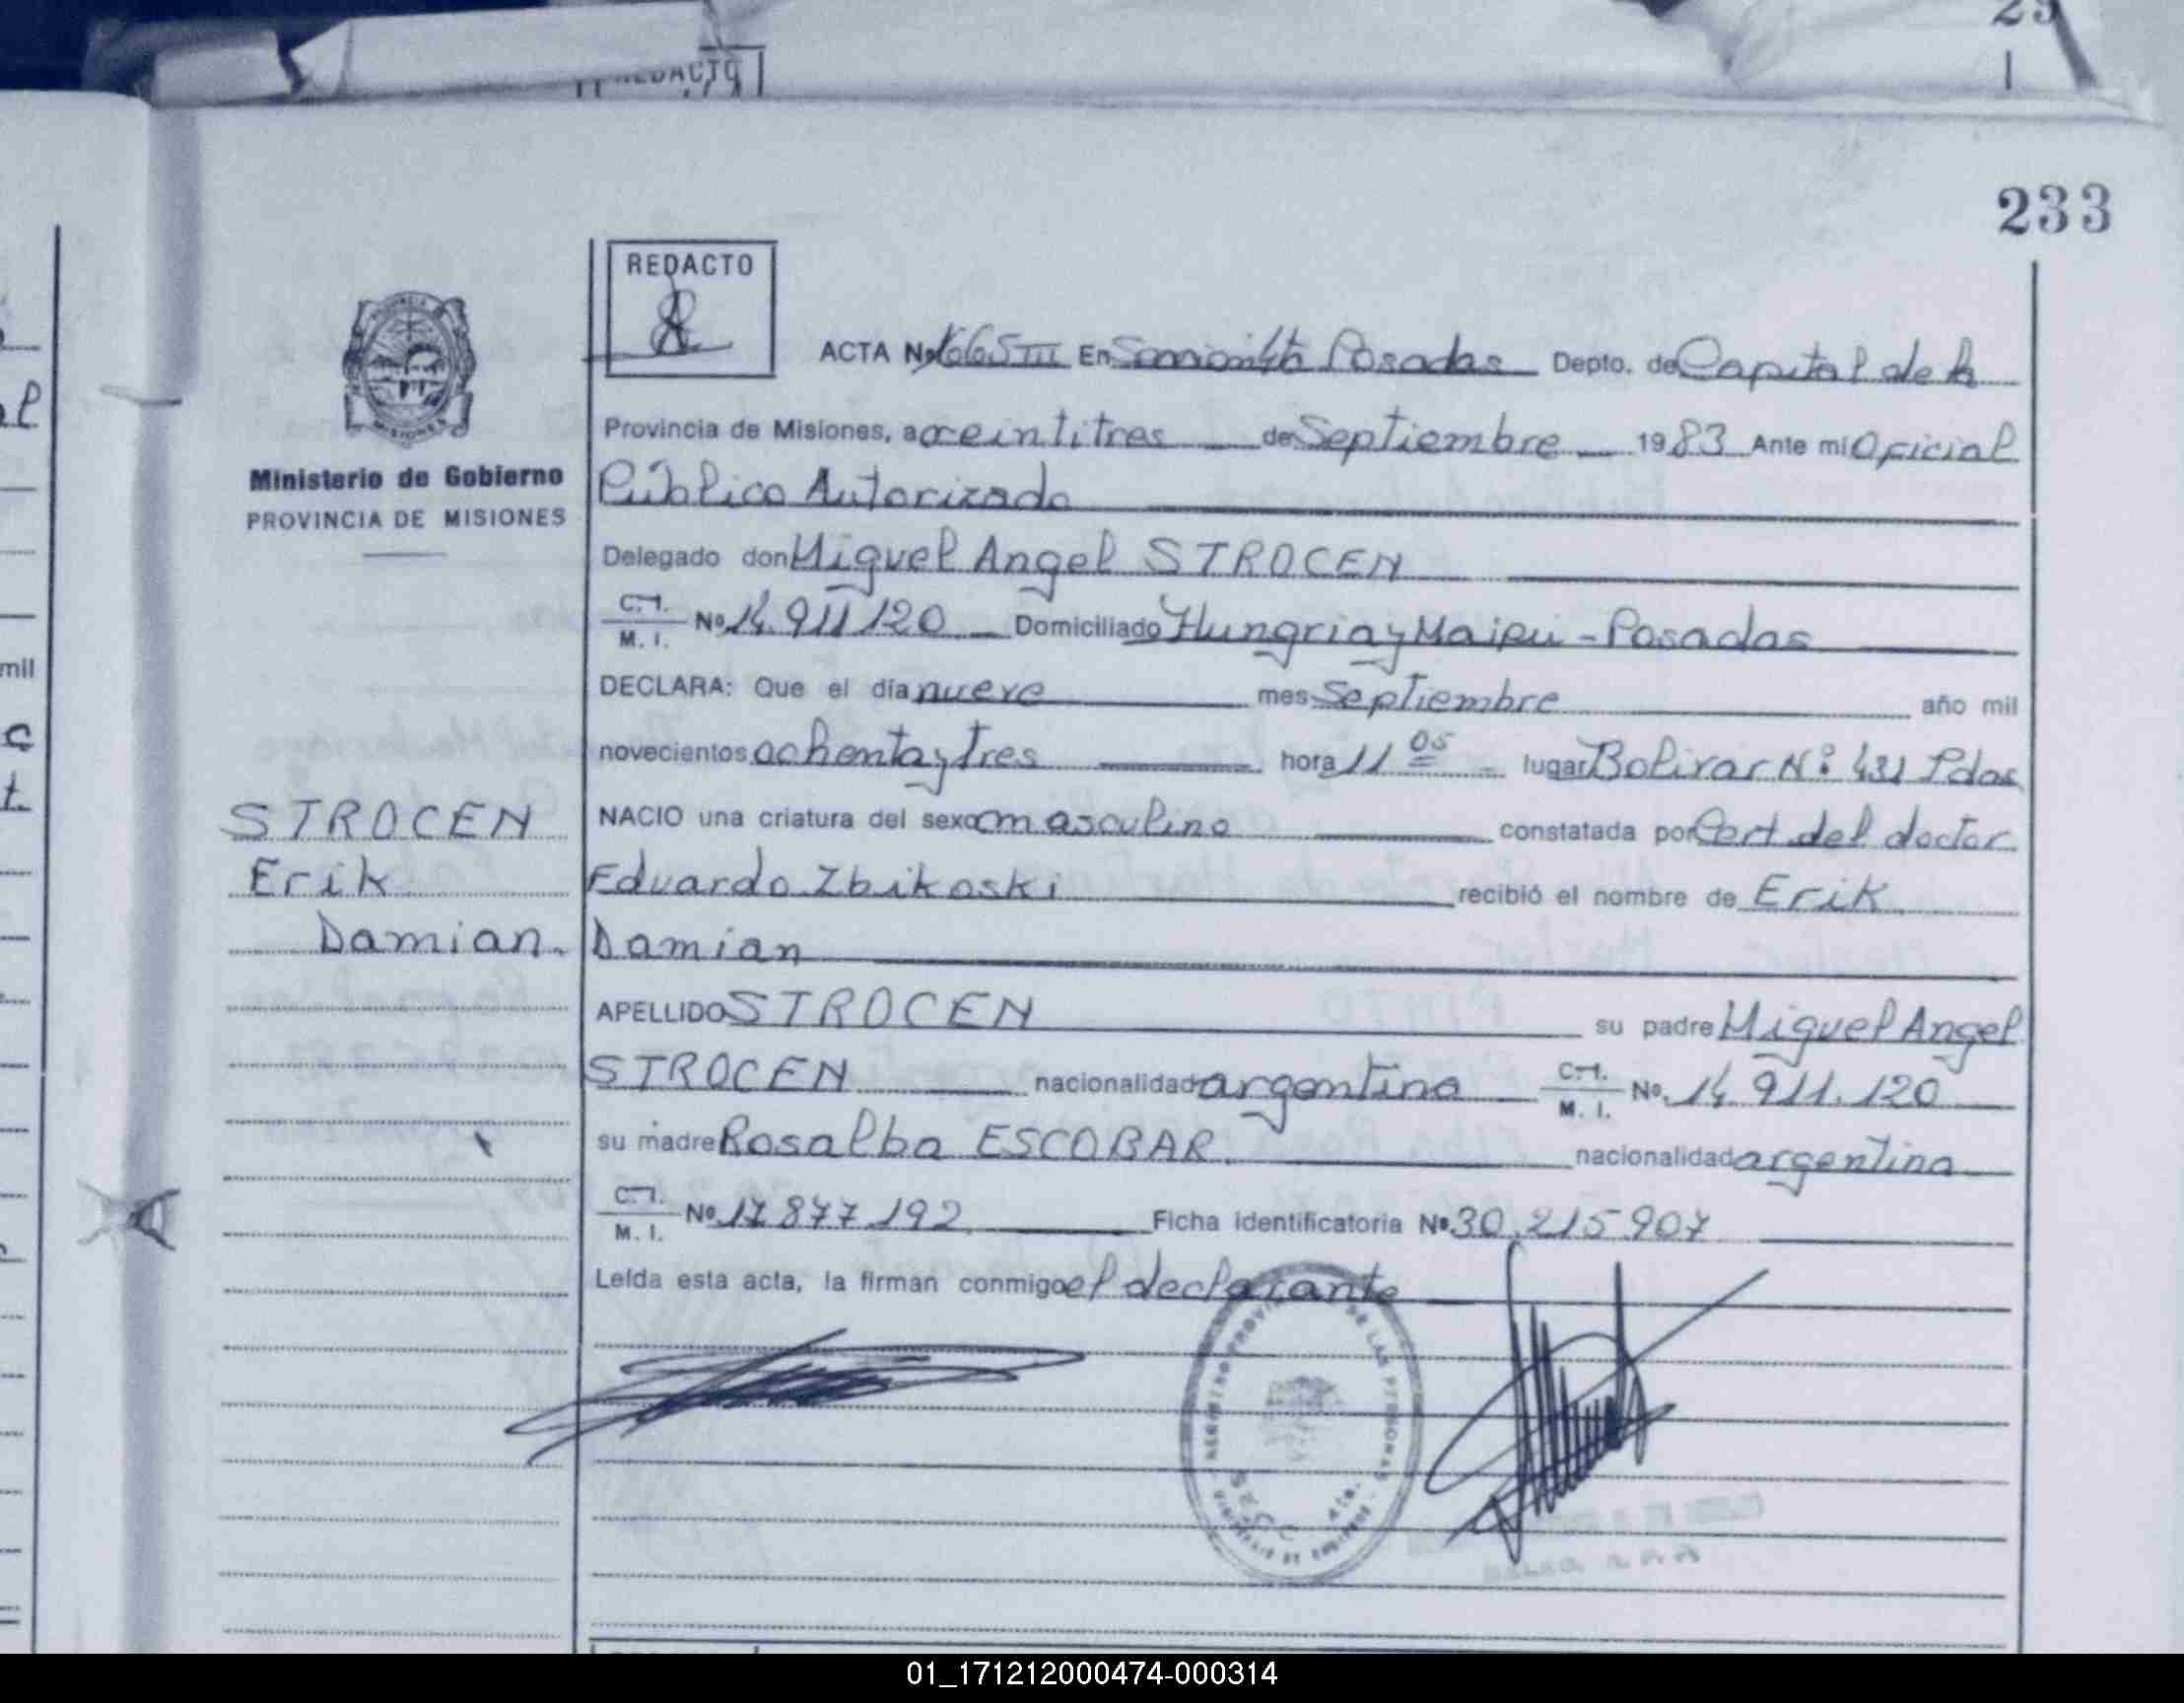 REDACTO
233
REDACTO
ACTA Nº 1665 III En Posadas Depto. de Capital de la
Provincia de Misiones, a veintitres de Septiembre 1983 Ante mi Oficial
Público Autorizado
Ministerio de Gobierno
PROVINCIA DE MISIONES
Delegado don Miguel Angel STROCEN
C.I. M. I. Nº 14.911.120 Domiciliado Hungria y Maipú - Posadas
DECLARA: Que el día nueve mes Septiembre año mil
novecientos ochenta y tres hora 11 05 lugar Bolivar Nº 431 Pdas
NACIO una criatura del sexo masculino constatada por Cert. del doctor
Eduardo Zbikoski recibió el nombre de Erik
Damian
STROCEN
Erik
Damian.
APELLIDO STROCEN su padre Miguel Angel
STROCEN nacionalidad argentina C.I. M. I. Nº 14.911.120
su madre Rosalba ESCOBAR. nacionalidad argentina
C.I. M. I. Nº 17.877.192. Ficha identificatoria Nº 30.215.907
Leída esta acta, la firman conmigo el declarante
01_171212000474-000314